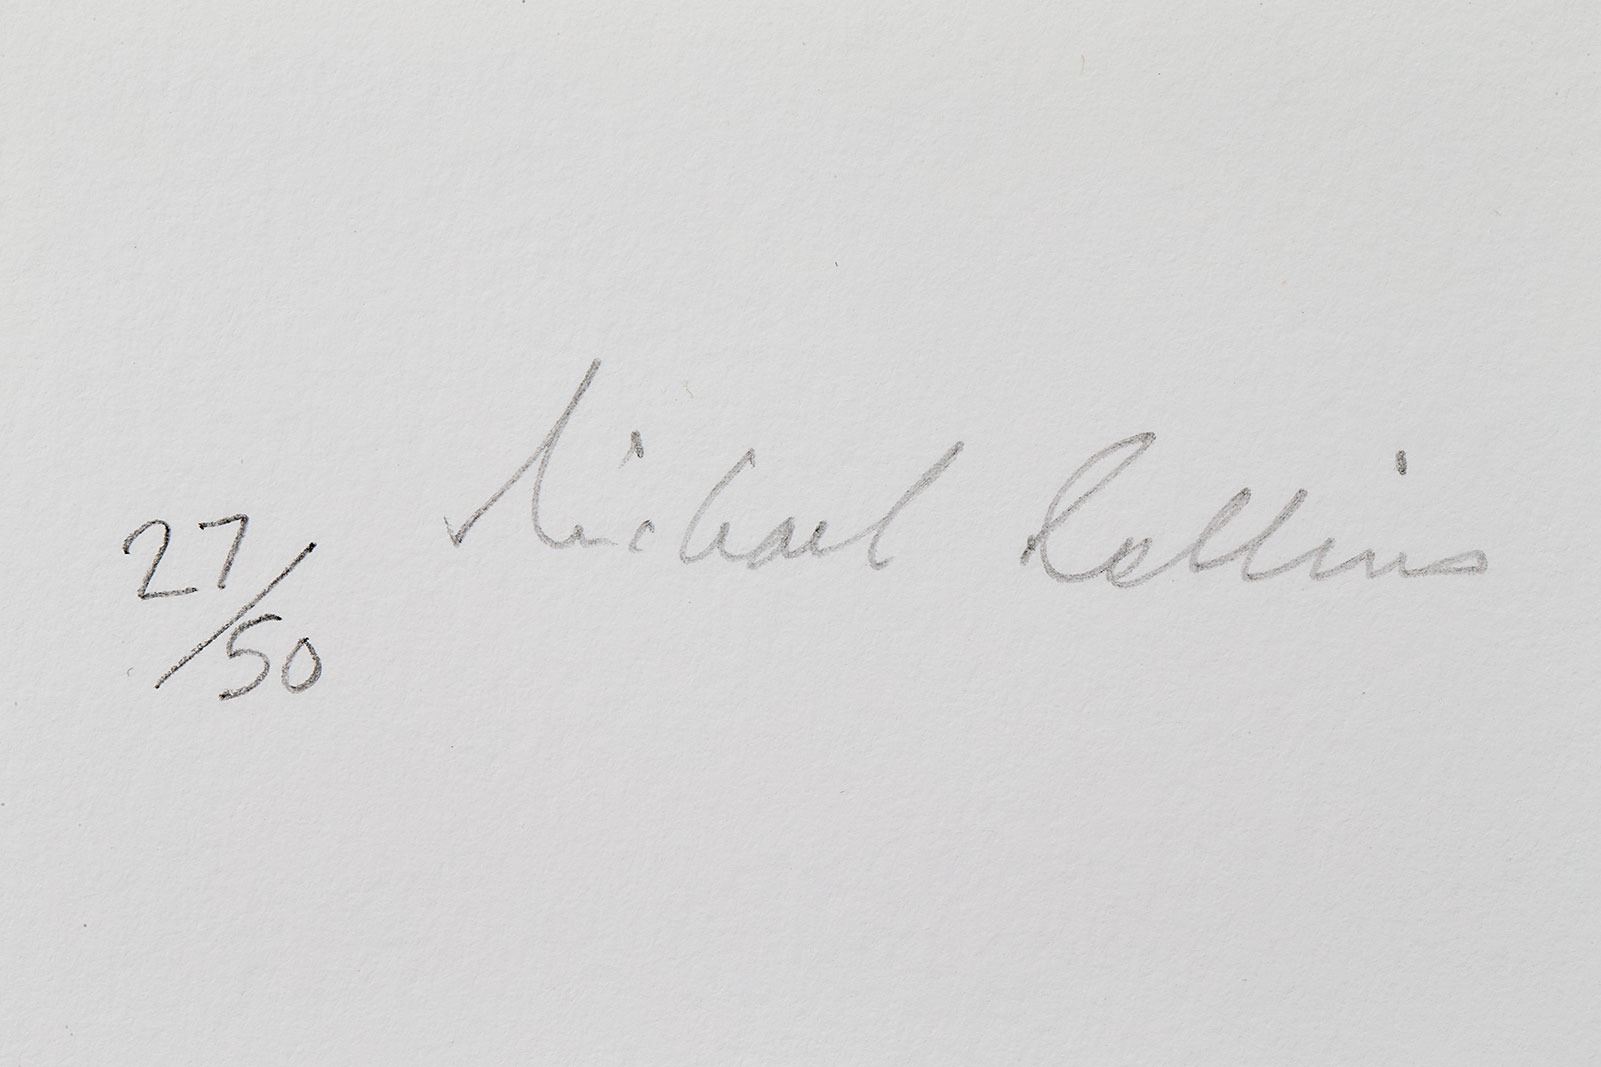 27/50 Michael Collins